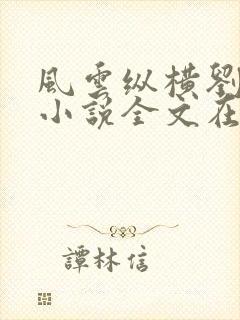 風雲纵橫劉
小說全文在
譚林信